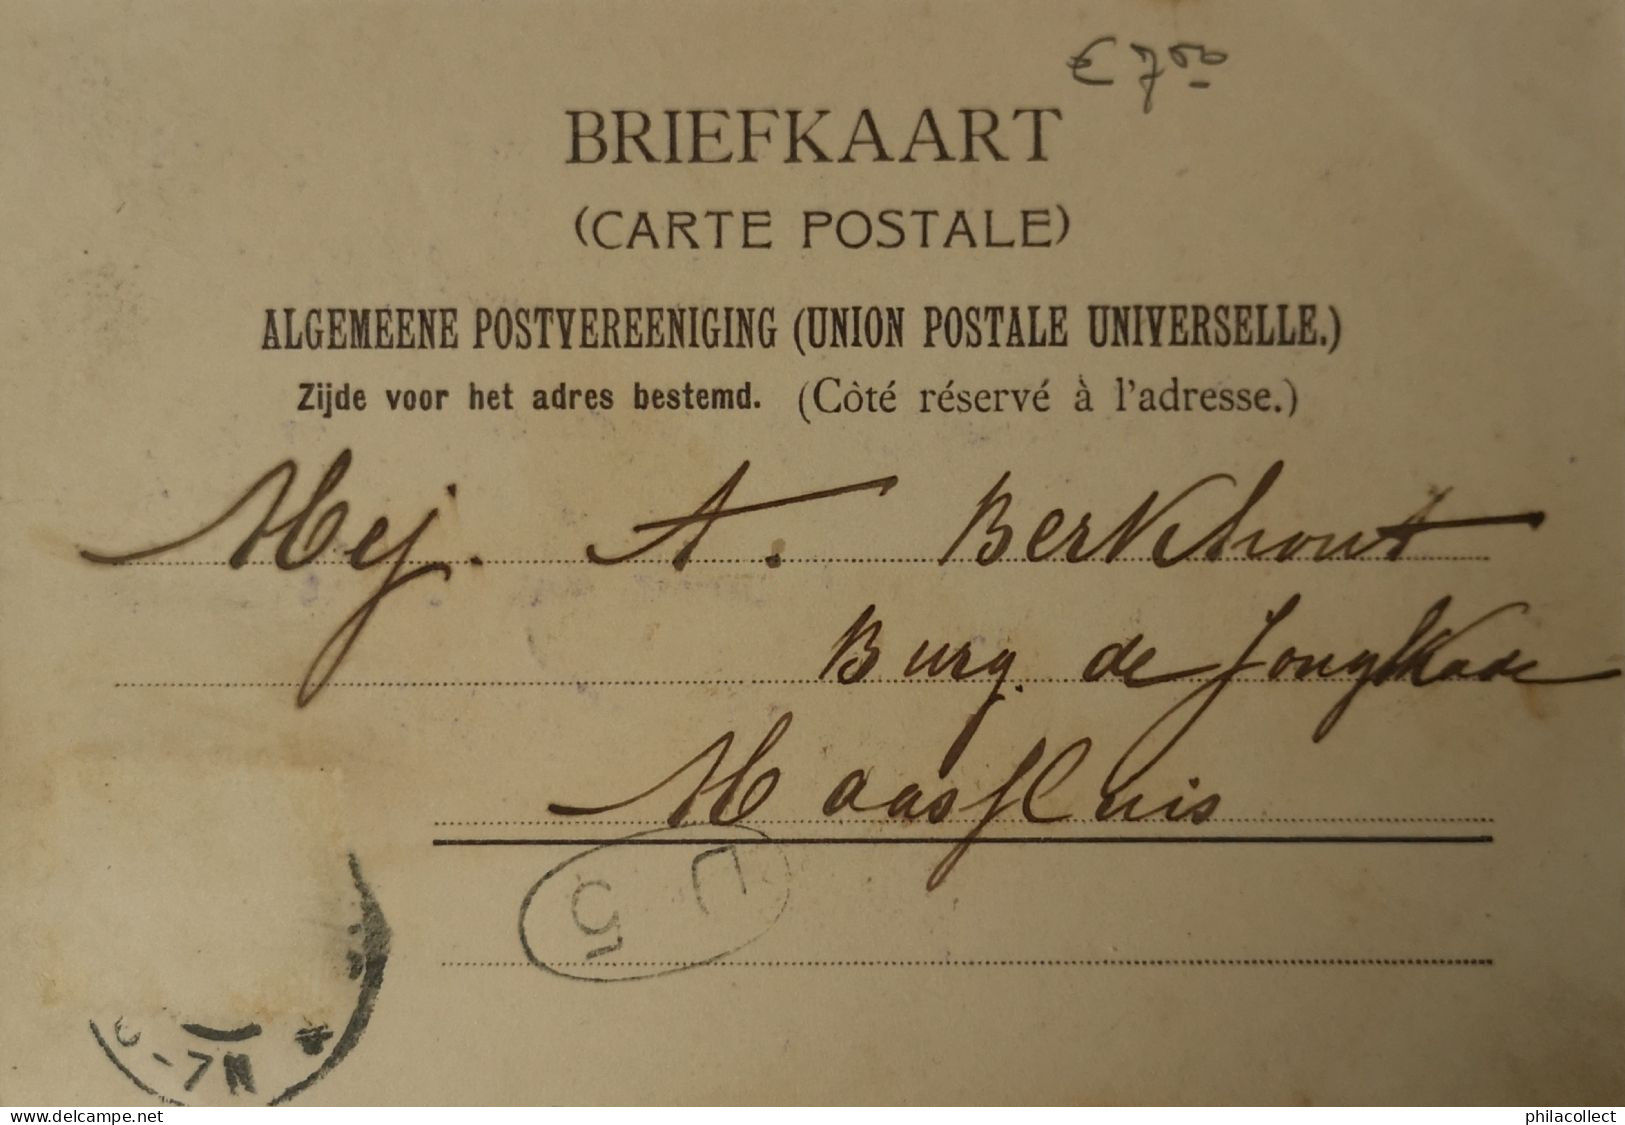 € 7 50
BRIEFKAART
(CARTE POSTALE)
ALGEMEENE POSTVEREENIGING (UNION POSTALE UNIVERSELLE.)
Zijde voor het adres bestemd. (Côté réservé à l'adresse.)
Mej. A. Berkhout
Burg. de Jongkade
Maassluis
5
-7N
delcampe.net
philacollect